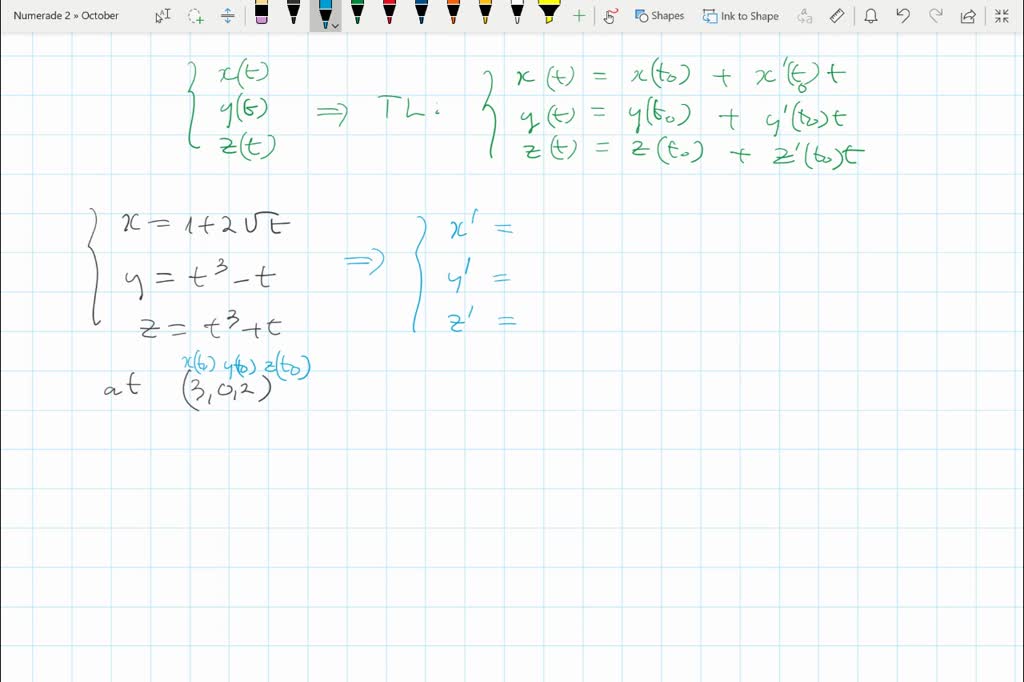 Numerade 2 » October
Shapes Ink to Shape
x(t)
y(t) ⇒ TL:
z(t)
x(t) = x(t₀) + x'(t₀)t
y(t) = y(t₀) + y'(t₀)t
z(t) = z(t₀) + z'(t₀)t
x = 1+2√t
y = t³-t
z = t³+t
⇒
x' =
y' =
z' =
x(t₀) y(t₀) z(t₀)
at (3,0,2)